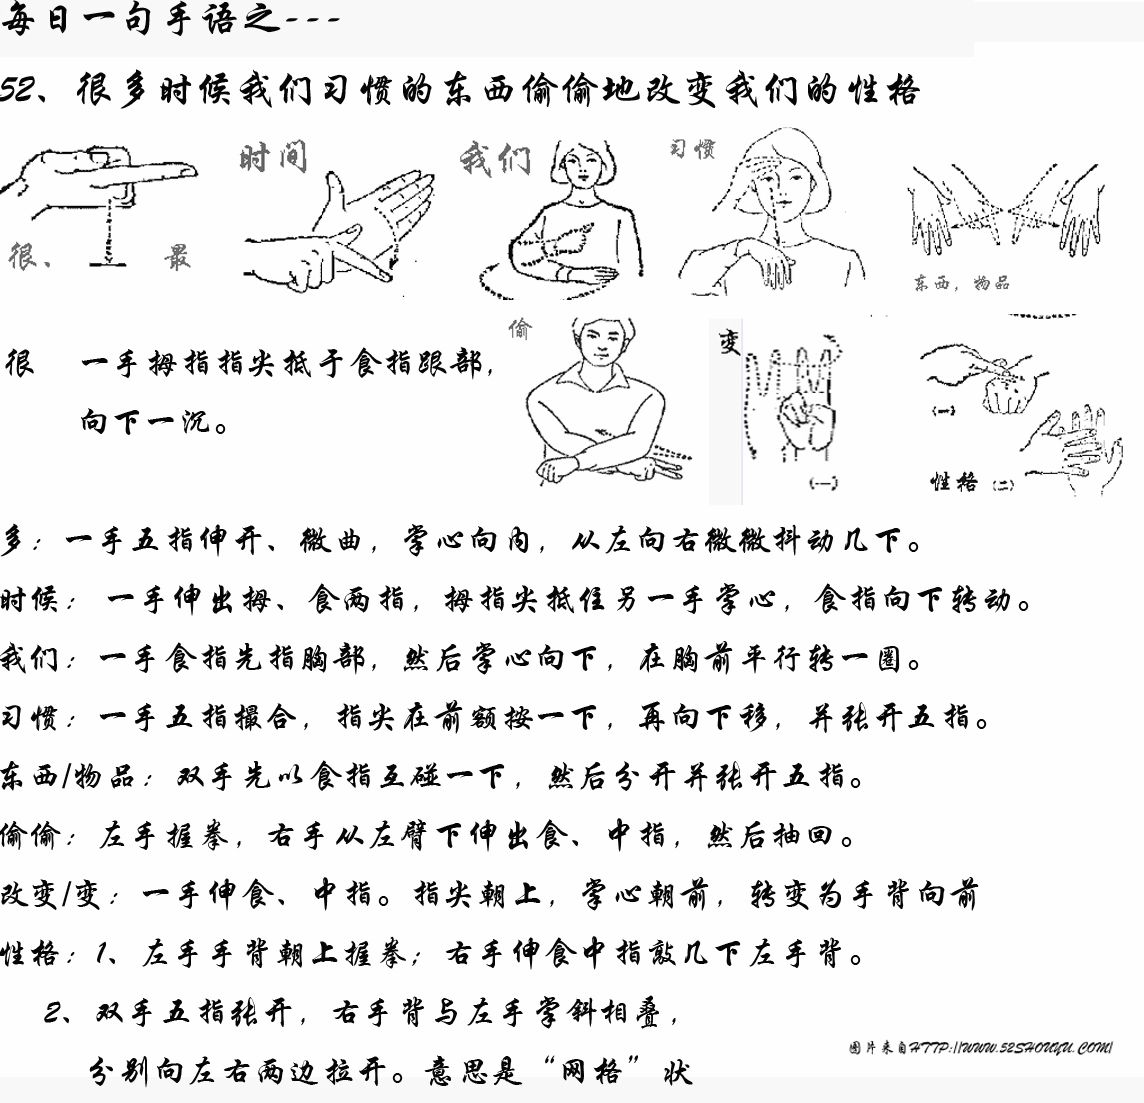 每日一句手语之---
52、很多时候我们习惯的东西偷偷地改变我们的性格
很、 最
时间
我们
习惯
东西，物品
很 一手拇指指尖抵于食指跟部，
向下一沉。
偷
变
(一)
(一)
性格 (二)
多：一手五指伸开、微曲，掌心向内，从左向右微微抖动几下。
时候： 一手伸出拇、食两指，拇指尖抵住另一手掌心，食指向下转动。
我们：一手食指先指胸部，然后掌心向下，在胸前平行转一圈。
习惯：一手五指撮合，指尖在前额按一下，再向下移，并张开五指。
东西/物品：双手先以食指互碰一下，然后分开并张开五指。
偷偷：左手握拳，右手从左臂下伸出食、中指，然后抽回。
改变/变：一手伸食、中指。指尖朝上，掌心朝前，转变为手背向前
性格：1、左手手背朝上握拳；右手伸食中指敲几下左手背。
2、双手五指张开，右手背与左手掌斜相叠，
分别向左右两边拉开。意思是“网格”状
图片来自HTTP://WWW.52SHOUYU.COM/